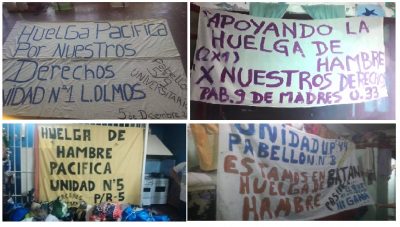 Huelga Pacifica
Por Nuestros
Derechos
UNIVERSITARIO
UNIDAD Nº1 L.OLMOS
5 de Diciembre
APOYANDO LA
(2X1) HUELGA DE
HAMBRE
X NUESTROS DERECHO
PAB.9 DE MADRES U.33
HUELGA DE
HAMBRE
PACIFICA
UNIDAD Nº5
P/R-5
UNIDAD UP 44
PABELLON N 8
ESTAMOS EN BATAN
HUELGA DE
HAMBRE